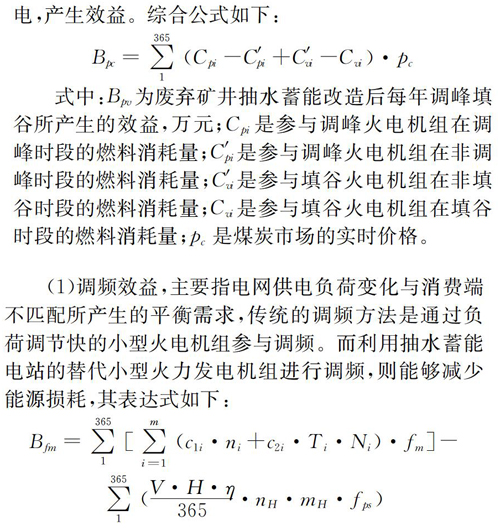 电,产生效益。综合公式如下:
B_{pc} = \sum_{1}^{365} (C_{pi} - C'_{pi} + C'_{vi} - C_{vi}) · p_c
式中:B_{pv}为废弃矿井抽水蓄能改造后每年调峰填
谷所产生的效益,万元;C_{pi}是参与调峰火电机组在调
峰时段的燃料消耗量;C'_{pi}是参与调峰火电机组在非调
峰时段的燃料消耗量;C'_{vi}是参与填谷火电机组在非填
谷时段的燃料消耗量;C_{vi}是参与填谷火电机组在填谷
时段的燃料消耗量;p_c 是煤炭市场的实时价格。
(1)调频效益,主要指电网供电负荷变化与消费端
不匹配所产生的平衡需求,传统的调频方法是通过负
荷调节快的小型火电机组参与调频。而利用抽水蓄能
电站的替代小型火力发电机组进行调频,则能够减少
能源损耗,其表达式如下:
B_{fm} = \sum_{1}^{365} [ \sum_{i=1}^{m} (c_{1i} · n_i + c_{2i} · T_i · N_i) · f_m ] -
\sum_{1}^{365} ( \frac{V · H · η}{365} · n_H · m_H · f_{ps} )